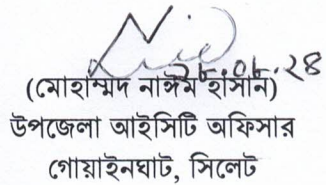 ২৮.০৮.২৪
(মোহাম্মদ নাঈম হাসান)
উপজেলা আইসিটি অফিসার
গোয়াইনঘাট, সিলেট